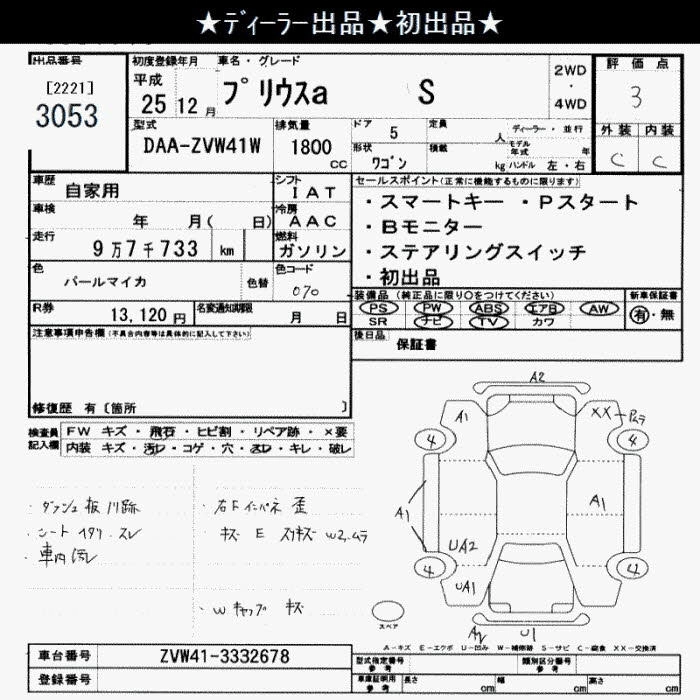 ★ディーラー出品★初出品★
出品番号
[2221]
3053
初度登録年月
平成
25 12 月
車名・グレード
プリウスa S
2WD
・
4WD
評価点
3
外装 内装
C C
型式
DAA-ZVW41W
排気量
1800
cc
ドア 5
定員 人
ディーラー・並行
形状
ワゴン
積載 kg
モデル年式 年
ハンドル 左・右
車歴
自家用
シフト
IAT
車検
年 月( 日)
冷房
AAC
走行
9万7千733 km
燃料
ガソリン
色
パールマイカ
色替
色コード
070
R券
13,120円
名変通知期限
月 日
セールスポイント(正常に機能するものに限ります)
・スマートキー ・Pスタート
・Bモニター
・ステアリングスイッチ
・初出品
装備品 (純正品に限り○をつけてください)
PS PW ABS エアB AW
SR ナビ TV カワ
新車保証書
有・無
後日品
保証書
注意事項申告欄(不具合内容等は具体的に記入して下さい)
修復歴 有〔箇所 〕
検査員記入欄
FW キズ・飛石・ヒビ割・リペア跡・×要
内装 キズ・汚レ・コゲ・穴・スレ・キレ・破レ
・ダッシュ板 爪跡
・シート スレ
・車内汚レ
・右Fインパネ 歪
キズ E スリキズ W2ムラ
・Wキャップ キズ
A2
A1
XX-Pムラ
4
4
A1
A1
UA2
4
4
UA1
U1
スペア
A-キズ E-エクボ U-凹み W-補修跡 S-サビ C-腐食 XX-交換済
車台番号
ZVW41-3332678
登録番号
型式指定番号
参考
類別区分番号
参考
車庫証明用
参考
長さ cm
幅 cm
高さ cm